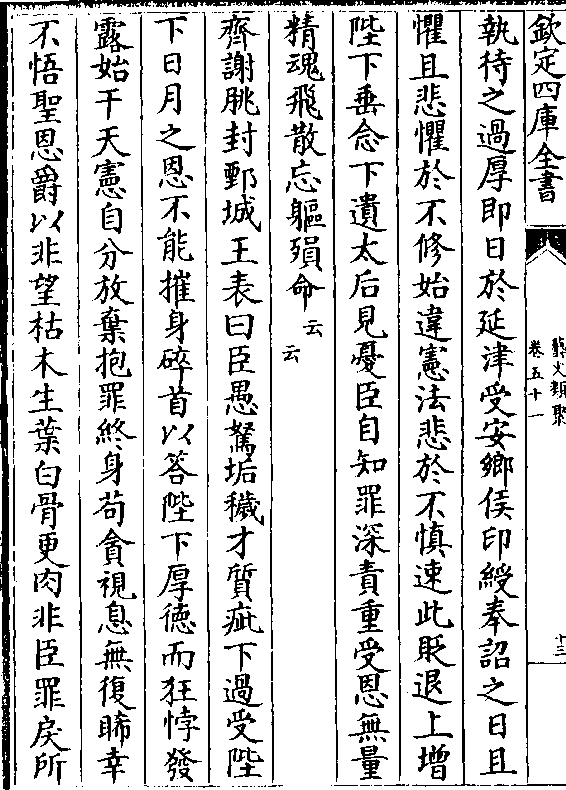 欽定四庫全書
藝文類聚
卷五十一
十三
執待之過厚即日於延津受安鄉侯印綬奉詔之日且
懼且悲懼於不修始違憲法悲於不慎速此貶退上增
陛下垂念下遺太后見憂臣自知罪深責重受恩無量
精魂飛散忘軀殞命云云
齊謝朓封鄄城王表曰臣愚駑垢穢才質疵下過受陛
下日月之恩不能摧身碎首以答陛下厚德而狂悖發
露始干天憲自分放棄抱罪終身苟貪視息無復睎幸
不悟聖恩爵以非望枯木生葉白骨更肉非臣罪戾所